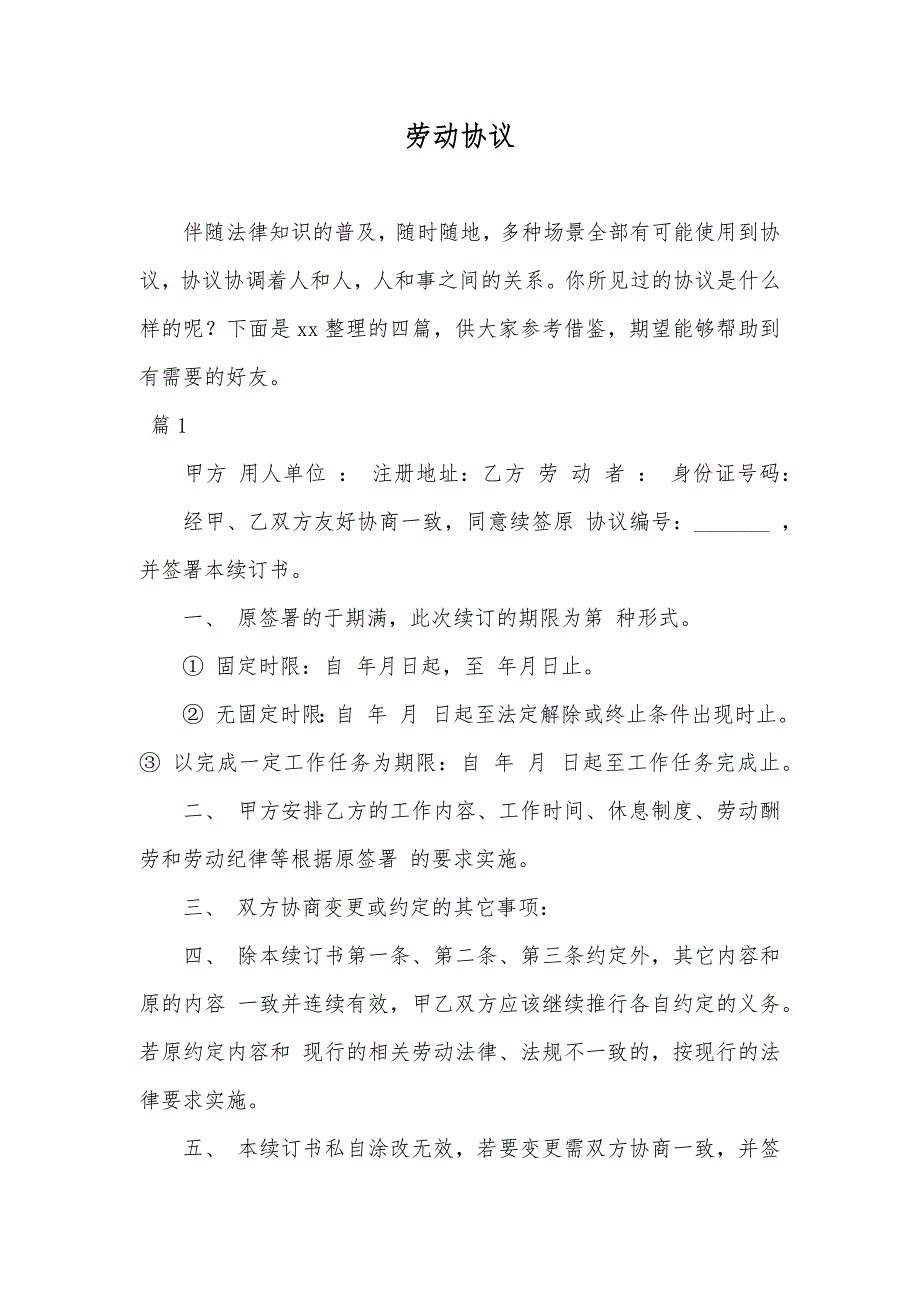 劳动协议
伴随法律知识的普及，随时随地，多种场景全部有可能使用到协
议，协议协调着人和人，人和事之间的关系。你所见过的协议是什么
样的呢？下面是 xx 整理的四篇，供大家参考借鉴，期望能够帮助到
有需要的好友。
篇 1
甲方 用人单位 ： 注册地址：乙方 劳 动 者 ： 身份证号码：
经甲、乙双方友好协商一致，同意续签原 协议编号：_______ ，
并签署本续订书。
一、 原签署的于期满，此次续订的期限为第 种形式。
① 固定时限：自 年月日起，至 年月日止。
② 无固定时限：自 年 月 日起至法定解除或终止条件出现时止。
③ 以完成一定工作任务为期限：自 年 月 日起至工作任务完成止。
二、 甲方安排乙方的工作内容、工作时间、休息制度、劳动酬
劳和劳动纪律等根据原签署 的要求实施。
三、 双方协商变更或约定的其它事项：
四、 除本续订书第一条、第二条、第三条约定外，其它内容和
原的内容 一致并连续有效，甲乙双方应该继续推行各自约定的义务。
若原约定内容和 现行的相关劳动法律、法规不一致的，按现行的法
律要求实施。
五、 本续订书私自涂改无效，若要变更需双方协商一致，并签